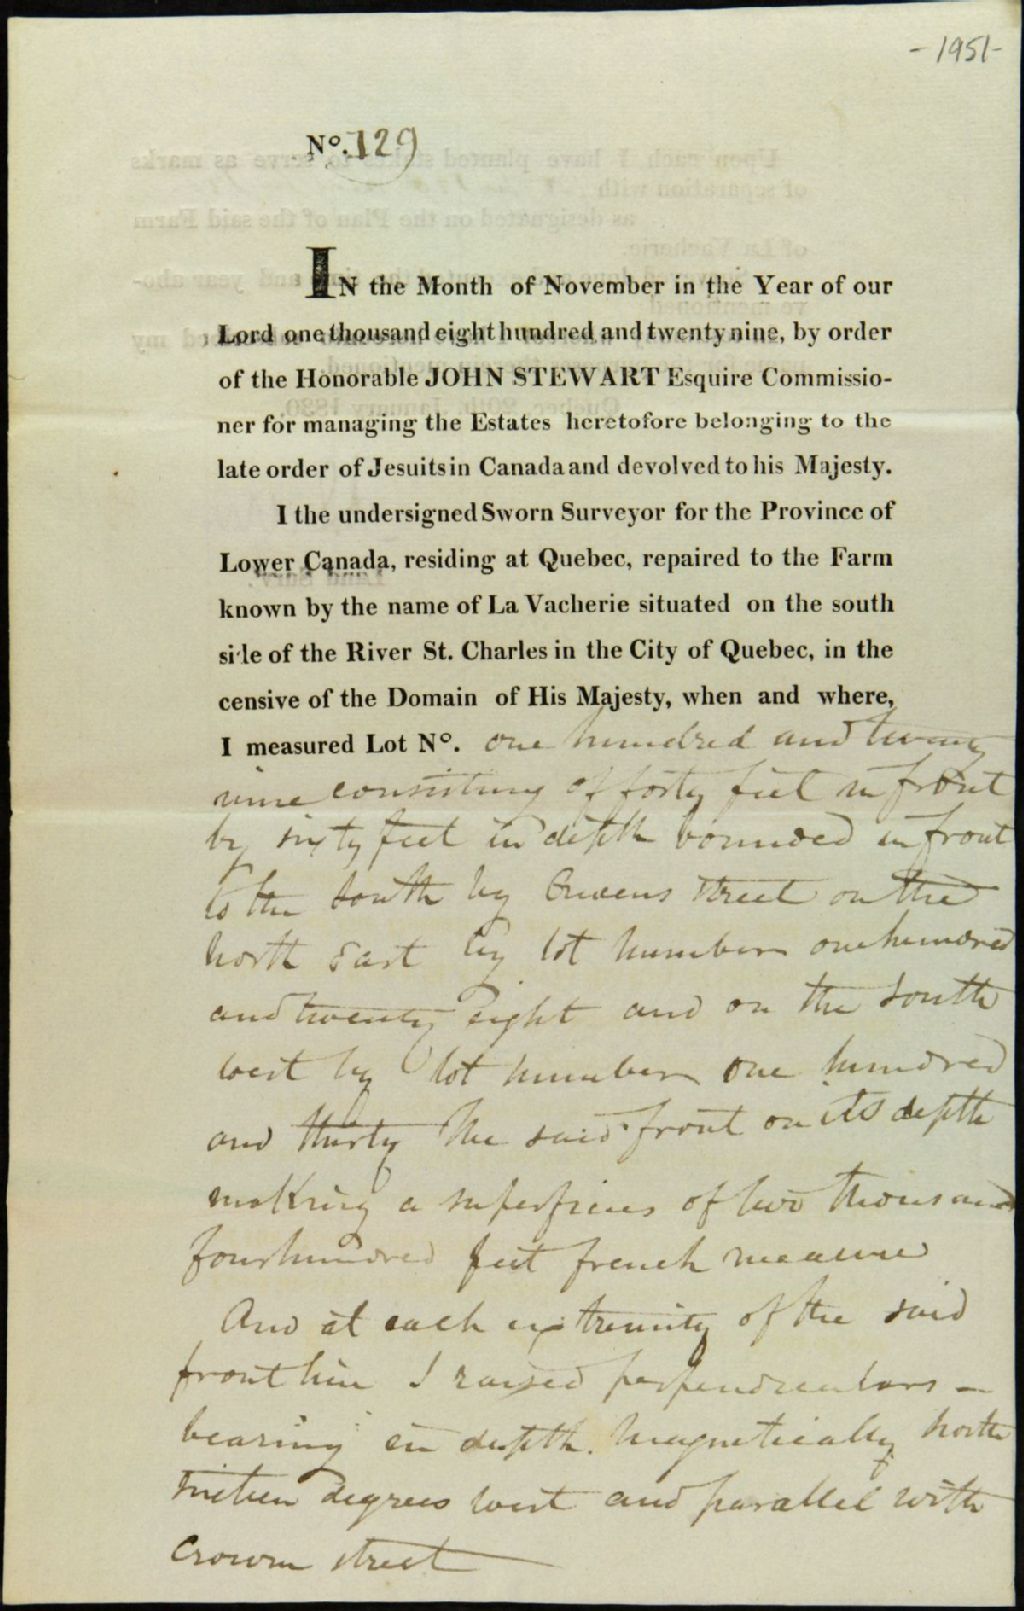 -1951-
No. 129
IN the Month of November in the Year of our
Lord one thousand eight hundred and twenty nine, by order
of the Honorable JOHN STEWART Esquire Commissio-
ner for managing the Estates heretofore belonging to the
late order of Jesuits in Canada and devolved to his Majesty.
I the undersigned Sworn Surveyor for the Province of
Lower Canada, residing at Quebec, repaired to the Farm
known by the name of La Vacherie situated on the south
side of the River St. Charles in the City of Quebec, in the
censive of the Domain of His Majesty, when and where,
I measured Lot No. one hundred and twenty
nine consisting of forty feet in front
by sixty feet in depth bounded in front
to the South by Queens Street on the
North East by lot number one hundred
and twenty eight and on the South
West by lot number one hundred
and thirty the said front on its depth
making a superficies of two thousand
four hundred feet french measure
And at each extremity of the said
front line I raised perpendiculars -
bearing in depth Magnetically North
degrees west and parallel with
Crown street